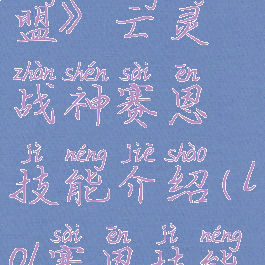 盟》亡灵
zhàn shén sài ēn
战神赛恩
jì néng jiè shào
技能介绍(l
sài ēn jì néng
ol赛恩技能